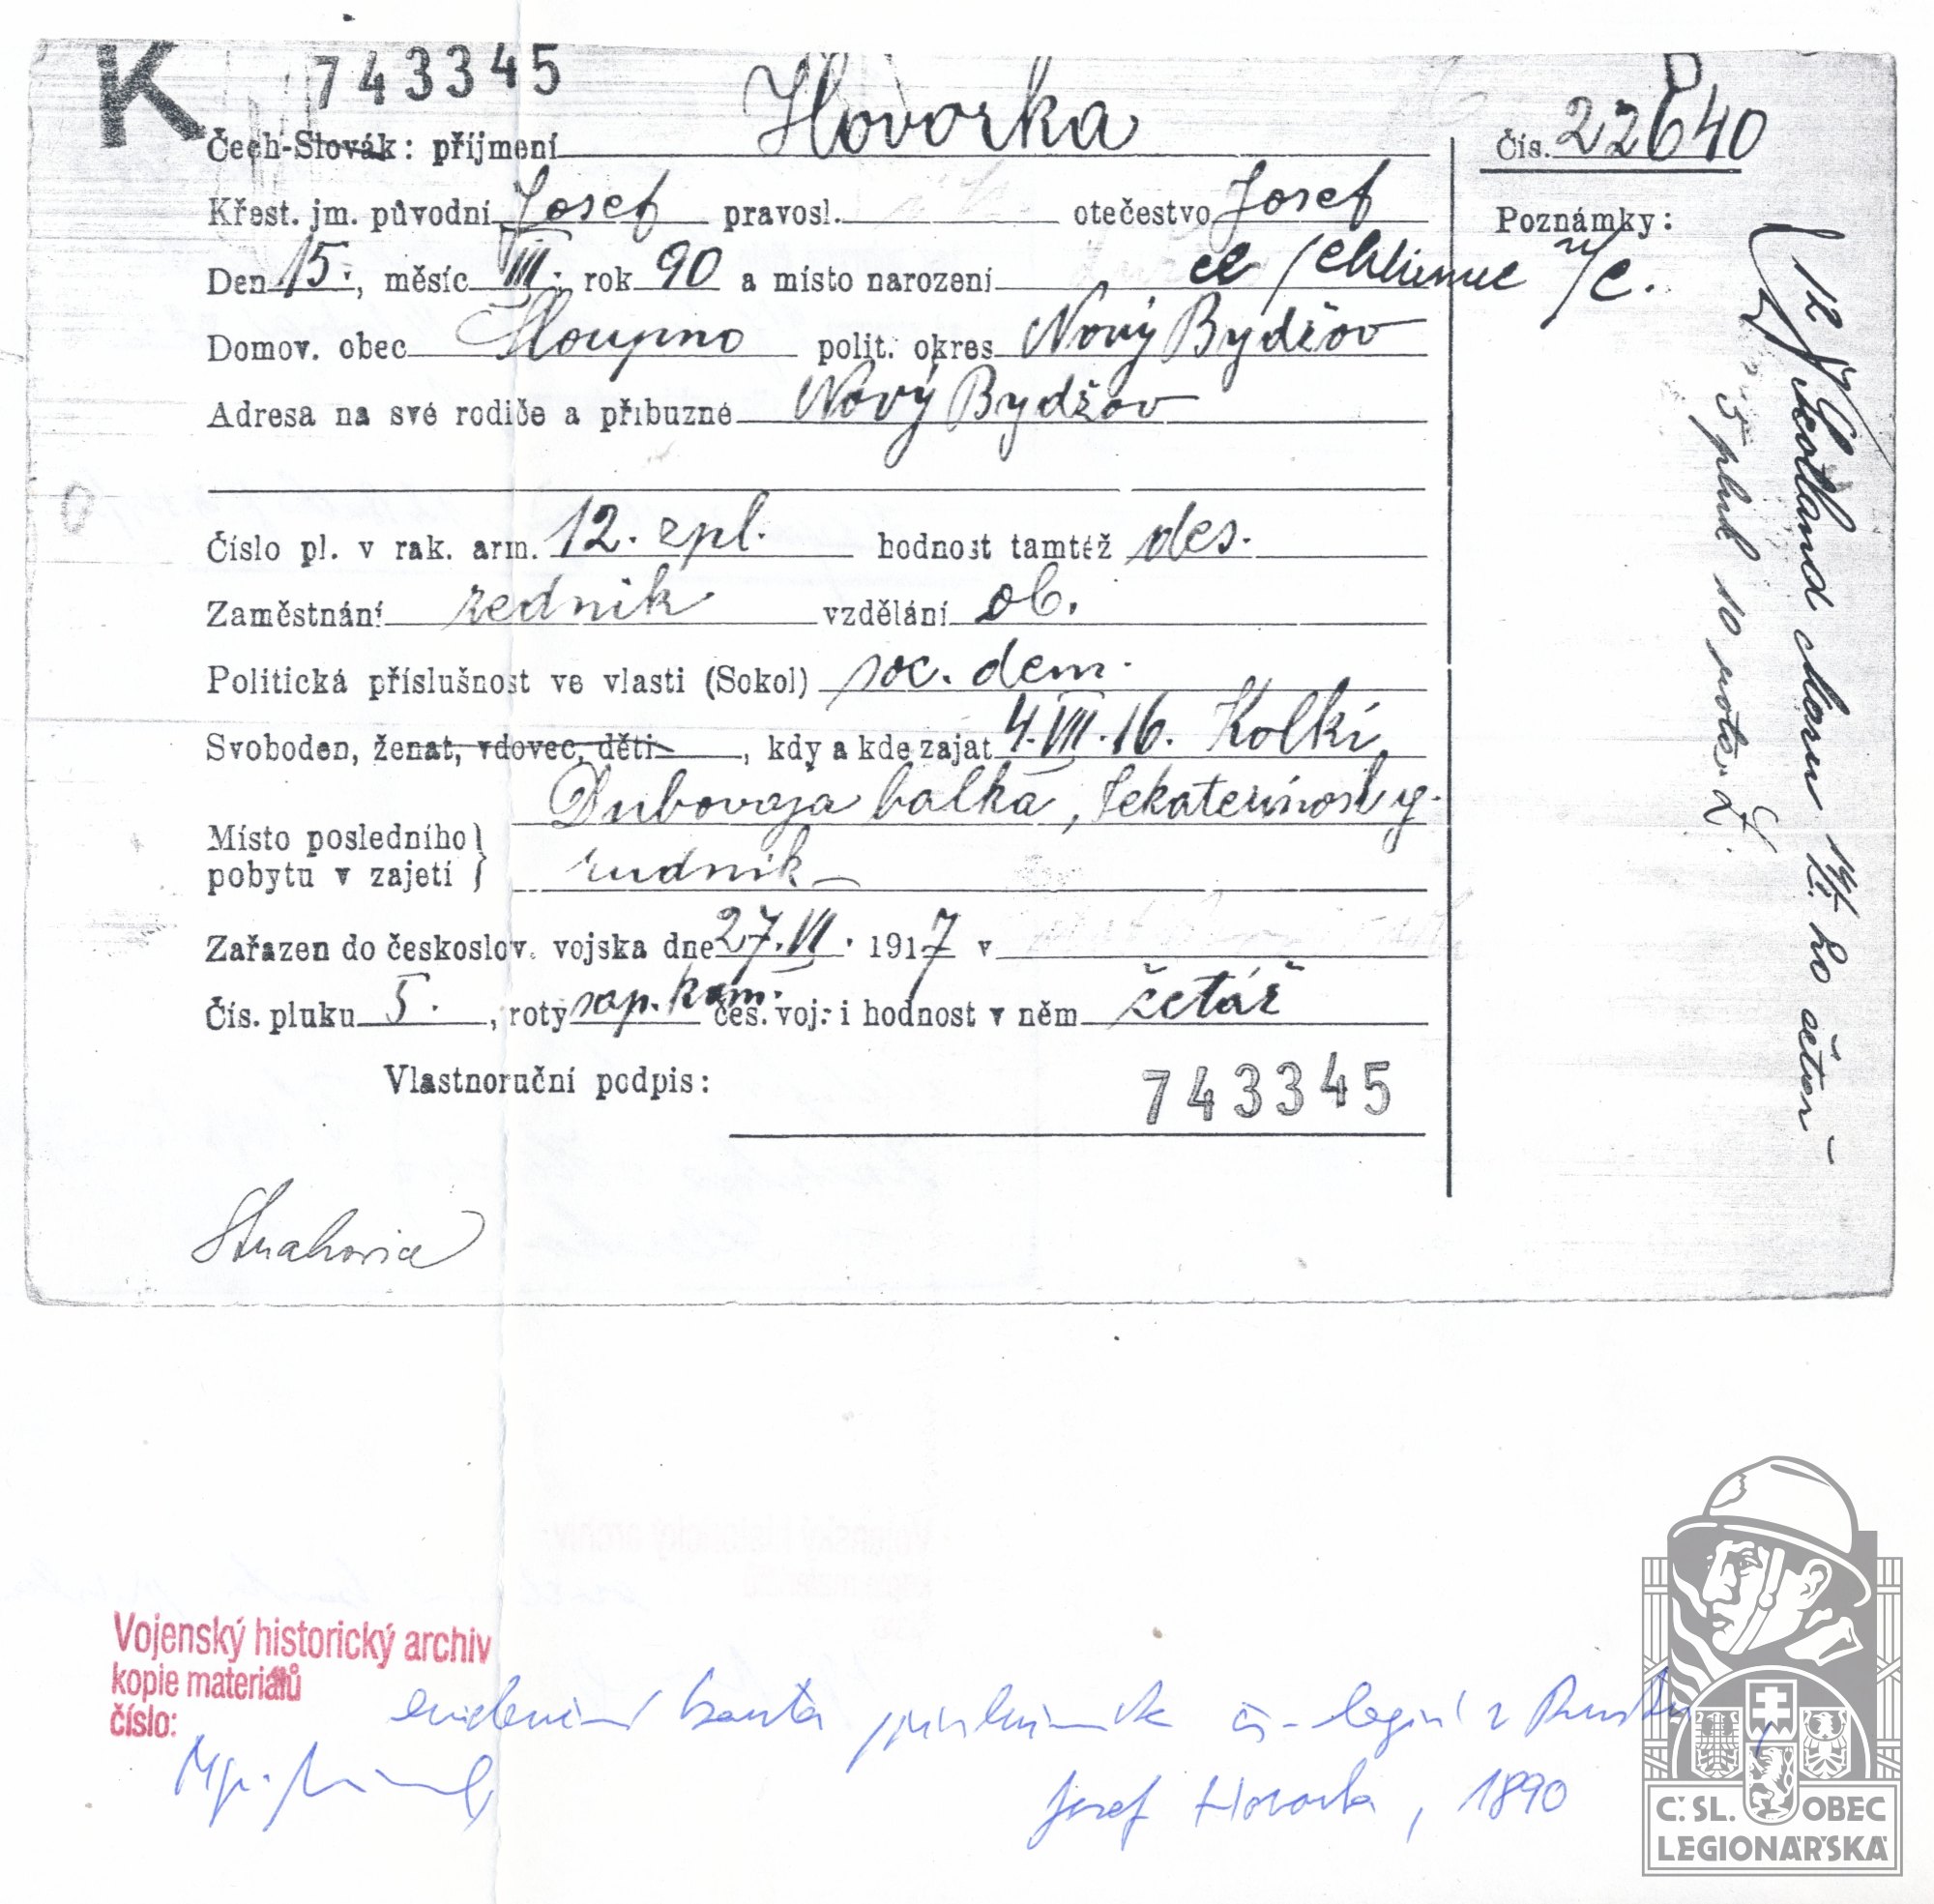 K 743345
Čech-Slovák: příjmení Hovorka
Čís. 22640
Křest. jm. původní Josef pravosl. otečestvo Josef
Poznámky:
Den 15., měsíc III. rok 90 a místo narození Chlumec n/C.
Domov. obec Sloupno polit. okres Nový Bydžov
Adresa na své rodiče a příbuzné Nový Bydžov
Číslo pl. v rak. arm. 12. zpl. hodnost tamtéž des.
Zaměstnání zedník vzdělání ob.
Politická příslušnost ve vlasti (Sokol) soc. dem.
Svoboden, ženat, vdovec, děti, kdy a kde zajat 4.VII.16. Kolki,
Dubovaja balka, Jekaterinosl. g.
Místo posledního
pobytu v zajetí } rudnik
Zařazen do českoslov. vojska dne 27.VI. 1917 v
Čís. pluku 5., roty sap. kom. čes. voj. i hodnost v něm četař
Vlastnoruční podpis:
743345
5 pluk 10 rota
Vojenský historický archiv
kopie materiálů
číslo:
evidenční karta příslušníka čs. legií v Rusku,
Josef Hovorka, 1890
Č.SL. OBEC
LEGIONÁŘSKÁ